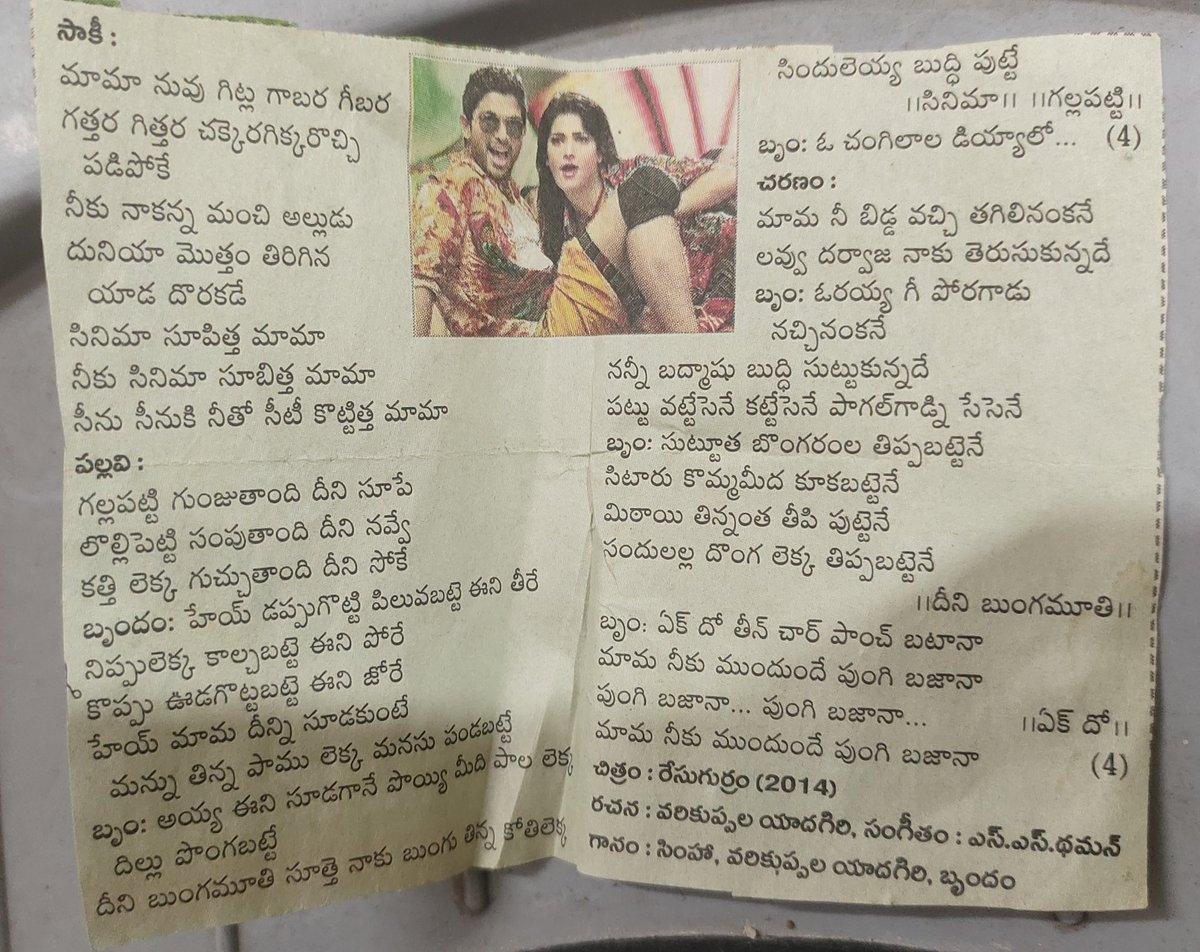 సాకీ :
మామా నువు గిట్ల గాబర గీబర
గత్తర గిత్తర చక్కెరగిక్కరొచ్చి
పడిపోకే
నీకు నాకన్న మంచి అల్లుడు
దునియా మొత్తం తిరిగిన
యాడ దొరకడే
సినిమా సూపిత్త మామా
నీకు సినిమా సూబిత్త మామా
సీను సీనుకి నీతో సీటీ కొట్టిత్త మామా
పల్లవి :
గల్లపట్టి గుంజుతాంది దీని సూపే
లొల్లిపెట్టి సంపుతాంది దీని నవ్వే
కత్తి లెక్క గుచ్చుతాంది దీని సోకే
బృందం: హేయ్ డప్పుగొట్టి పిలువబట్టె ఈని తీరే
నిప్పులెక్క కాల్చబట్టె ఈని పోరే
కొప్పు ఊడగొట్టబట్టె ఈని జోరే
హేయ్ మామ దీన్ని సూడకుంటే
మన్ను తిన్న పాము లెక్క మనసు పండబట్టే
బృం: అయ్య ఈని సూడగానే పొయ్యి మీది పాల లెక్క
దిల్లు పొంగబట్టే
దీని బుంగమూతి సూత్తె నాకు బుంగు తిన్న కోతిలెక్క
సిందులెయ్య బుద్ధి పుట్టే
।।సినిమా।। ।।గల్లపట్టి।।
బృం: ఓ చంగిలాల డియ్యాలో... (4)
చరణం :
మామ నీ బిడ్డ వచ్చి తగిలినంకనే
లవ్వు దర్వాజ నాకు తెరుసుకున్నదే
బృం: ఓరయ్య గీ పోరగాడు
నచ్చినంకనే
నన్నీ బద్మాషు బుద్ధి సుట్టుకున్నదే
పట్టు వట్టేసెనే కట్టేసెనే పాగల్‌గాడ్ని సేసెనే
బృం: సుట్టూత బొంగరంల తిప్పబట్టెనే
సిటారు కొమ్మమీద కూకబట్టెనే
మిఠాయి తిన్నంత తీపి పుట్టెనే
సందులల్ల దొంగ లెక్క తిప్పబట్టెనే
।।దీని బుంగమూతి।।
బృం: ఏక్ దో తీన్ చార్ పాంచ్ బటానా
మామ నీకు ముందుందే పుంగి బజానా
పుంగి బజానా... పుంగి బజానా... ।।ఏక్ దో।।
మామ నీకు ముందుందే పుంగి బజానా (4)
చిత్రం : రేసుగుర్రం (2014)
రచన : వరికుప్పల యాదగిరి, సంగీతం : ఎస్.ఎస్.థమన్
గానం : సింహా, వరికుప్పల యాదగిరి, బృందం